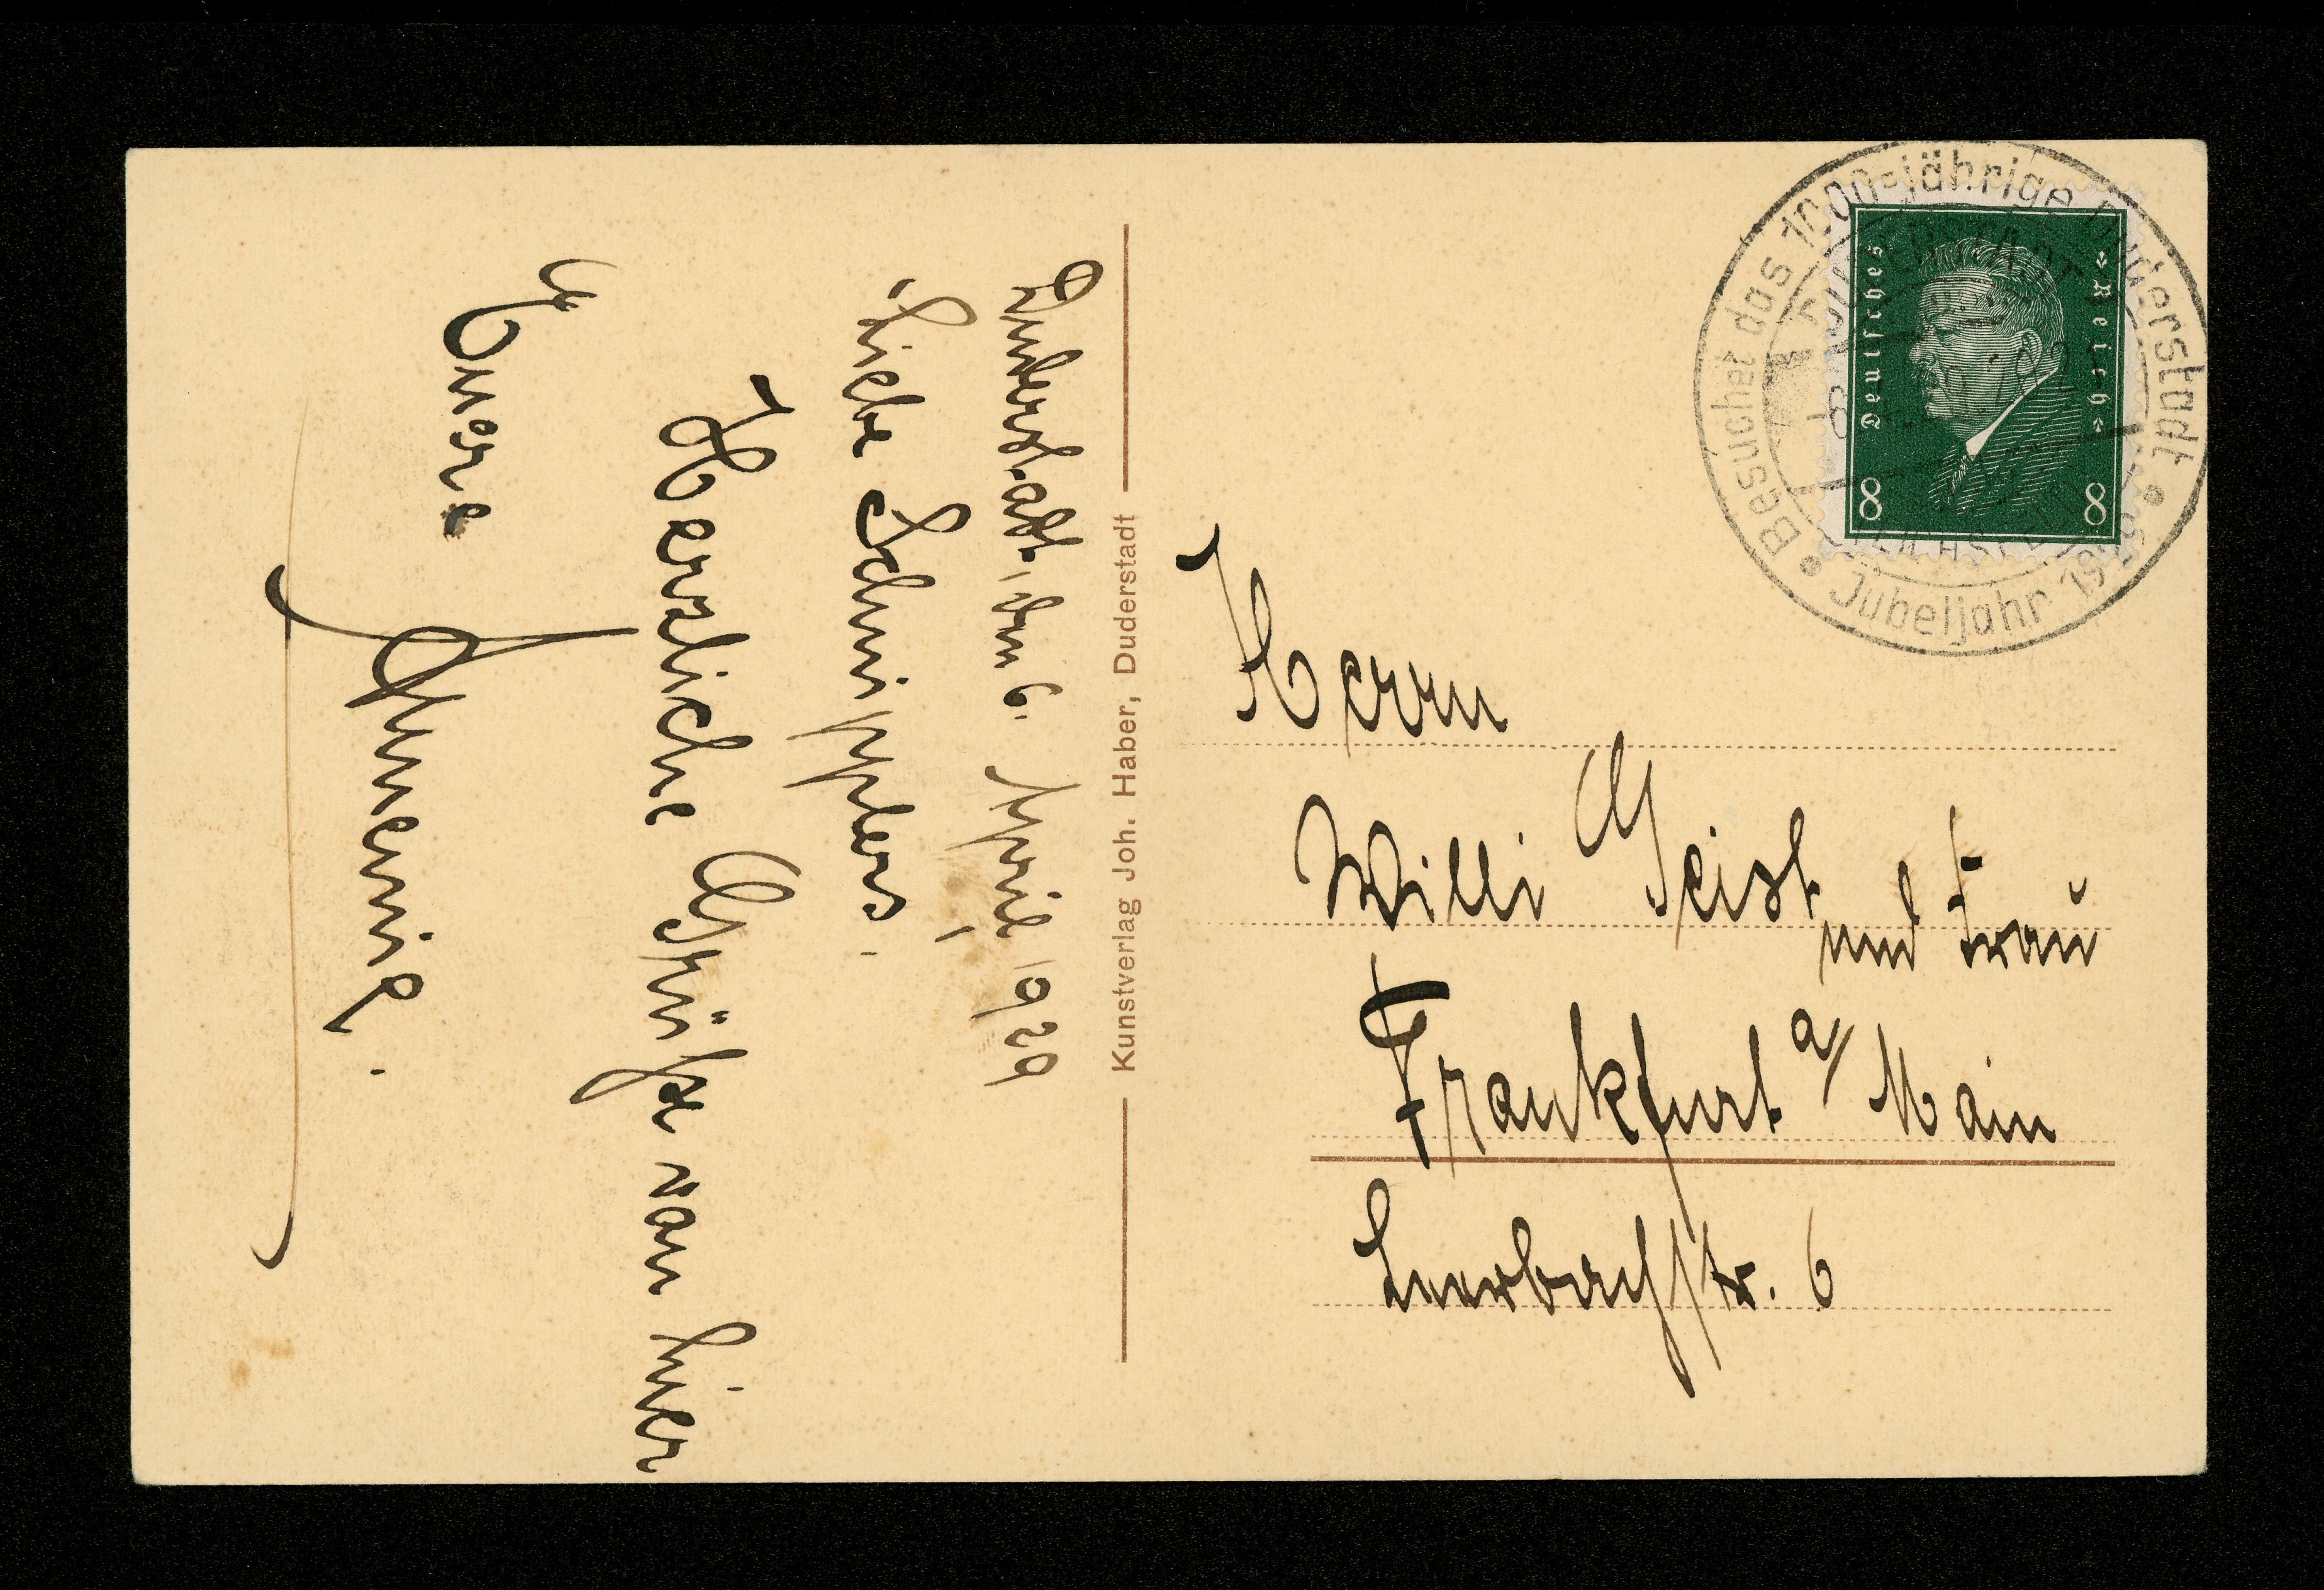 Duderstadt, den 6. April 1929
Liebe Schnipplers!
Herzliche Grüße von hier
Euere
Kunstverlag Joh. Haber, Duderstadt
Besuchet das 1000-jährige Duderstadt
Jubeljahr 19
Deutsches Reich
8 8
Herrn
Willi Geist
und Frau
Frankfurt a/Main
6